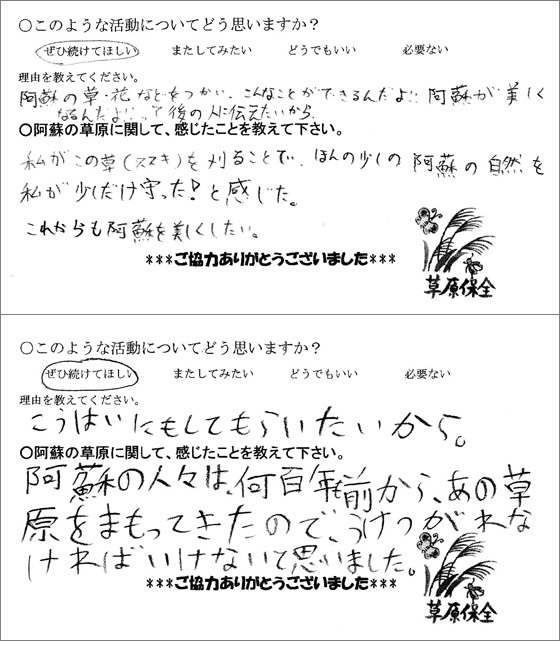 ○このような活動についてどう思いますか？
ぜひ続けてほしい またしてみたい どうでもいい 必要ない
理由を教えてください。
阿蘇の草・花などをつかい、こんなことができるんだよ!! 阿蘇が美しく
なるんだよ!って後の人に伝えたいから。
○阿蘇の草原に関して、感じたことを教えて下さい。
私がこの草(ススキ)を刈ることで、ほんの少しの阿蘇の自然を
私が少しだけ守った!と感じた。
これからも阿蘇を美しくしたい。
***ご協力ありがとうございました***
草原保全
○このような活動についてどう思いますか？
ぜひ続けてほしい またしてみたい どうでもいい 必要ない
理由を教えてください。
こうはいにもしてもらいたいから。
○阿蘇の草原に関して、感じたことを教えて下さい。
阿蘇の人々は、何百年も前から、あの草
原をまもってきたので、うけつがれな
ければいけないと思いました。
***ご協力ありがとうございました***
草原保全